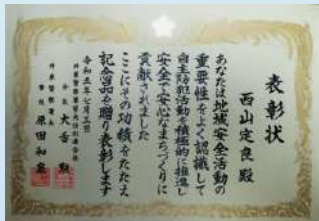 表彰状
西山定良殿
あなたは地域安全活動の
重要性をよく認識して
自主防犯活動を積極的に推進し
安全で安心なまちづくりに
貢献されました
ここにその功績をたたえ
記念品を贈り表彰します
令和五年七月三日
会長
井原警察署長
警視 原田和